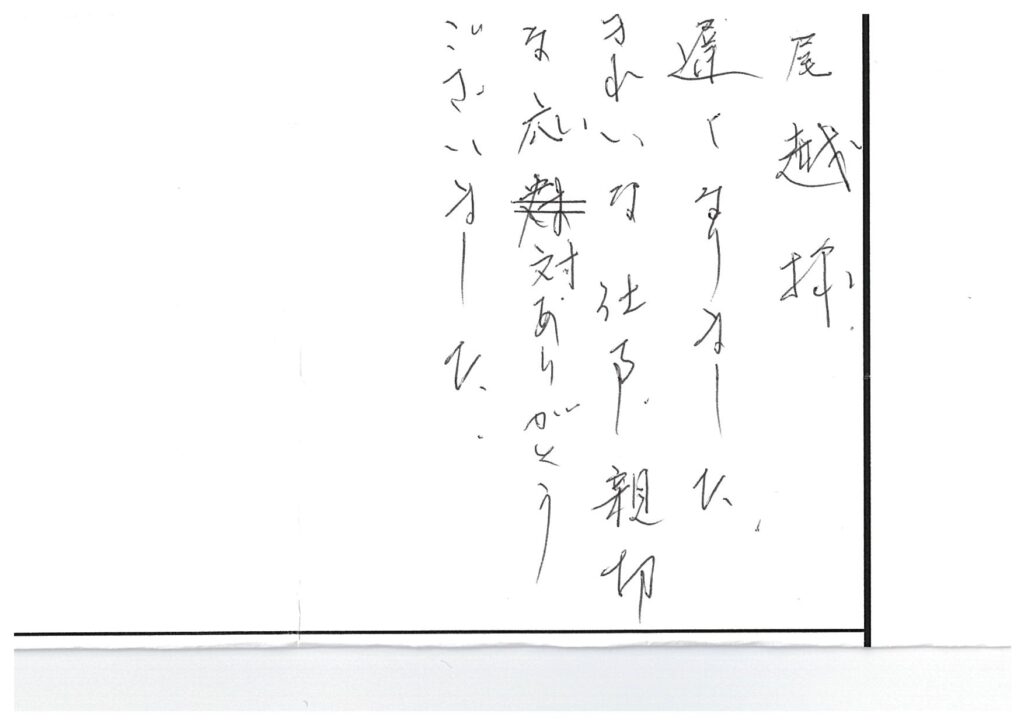 尾越様
遅くなりました。
きれいな仕事、親切
な応対ありがとう
ございました。